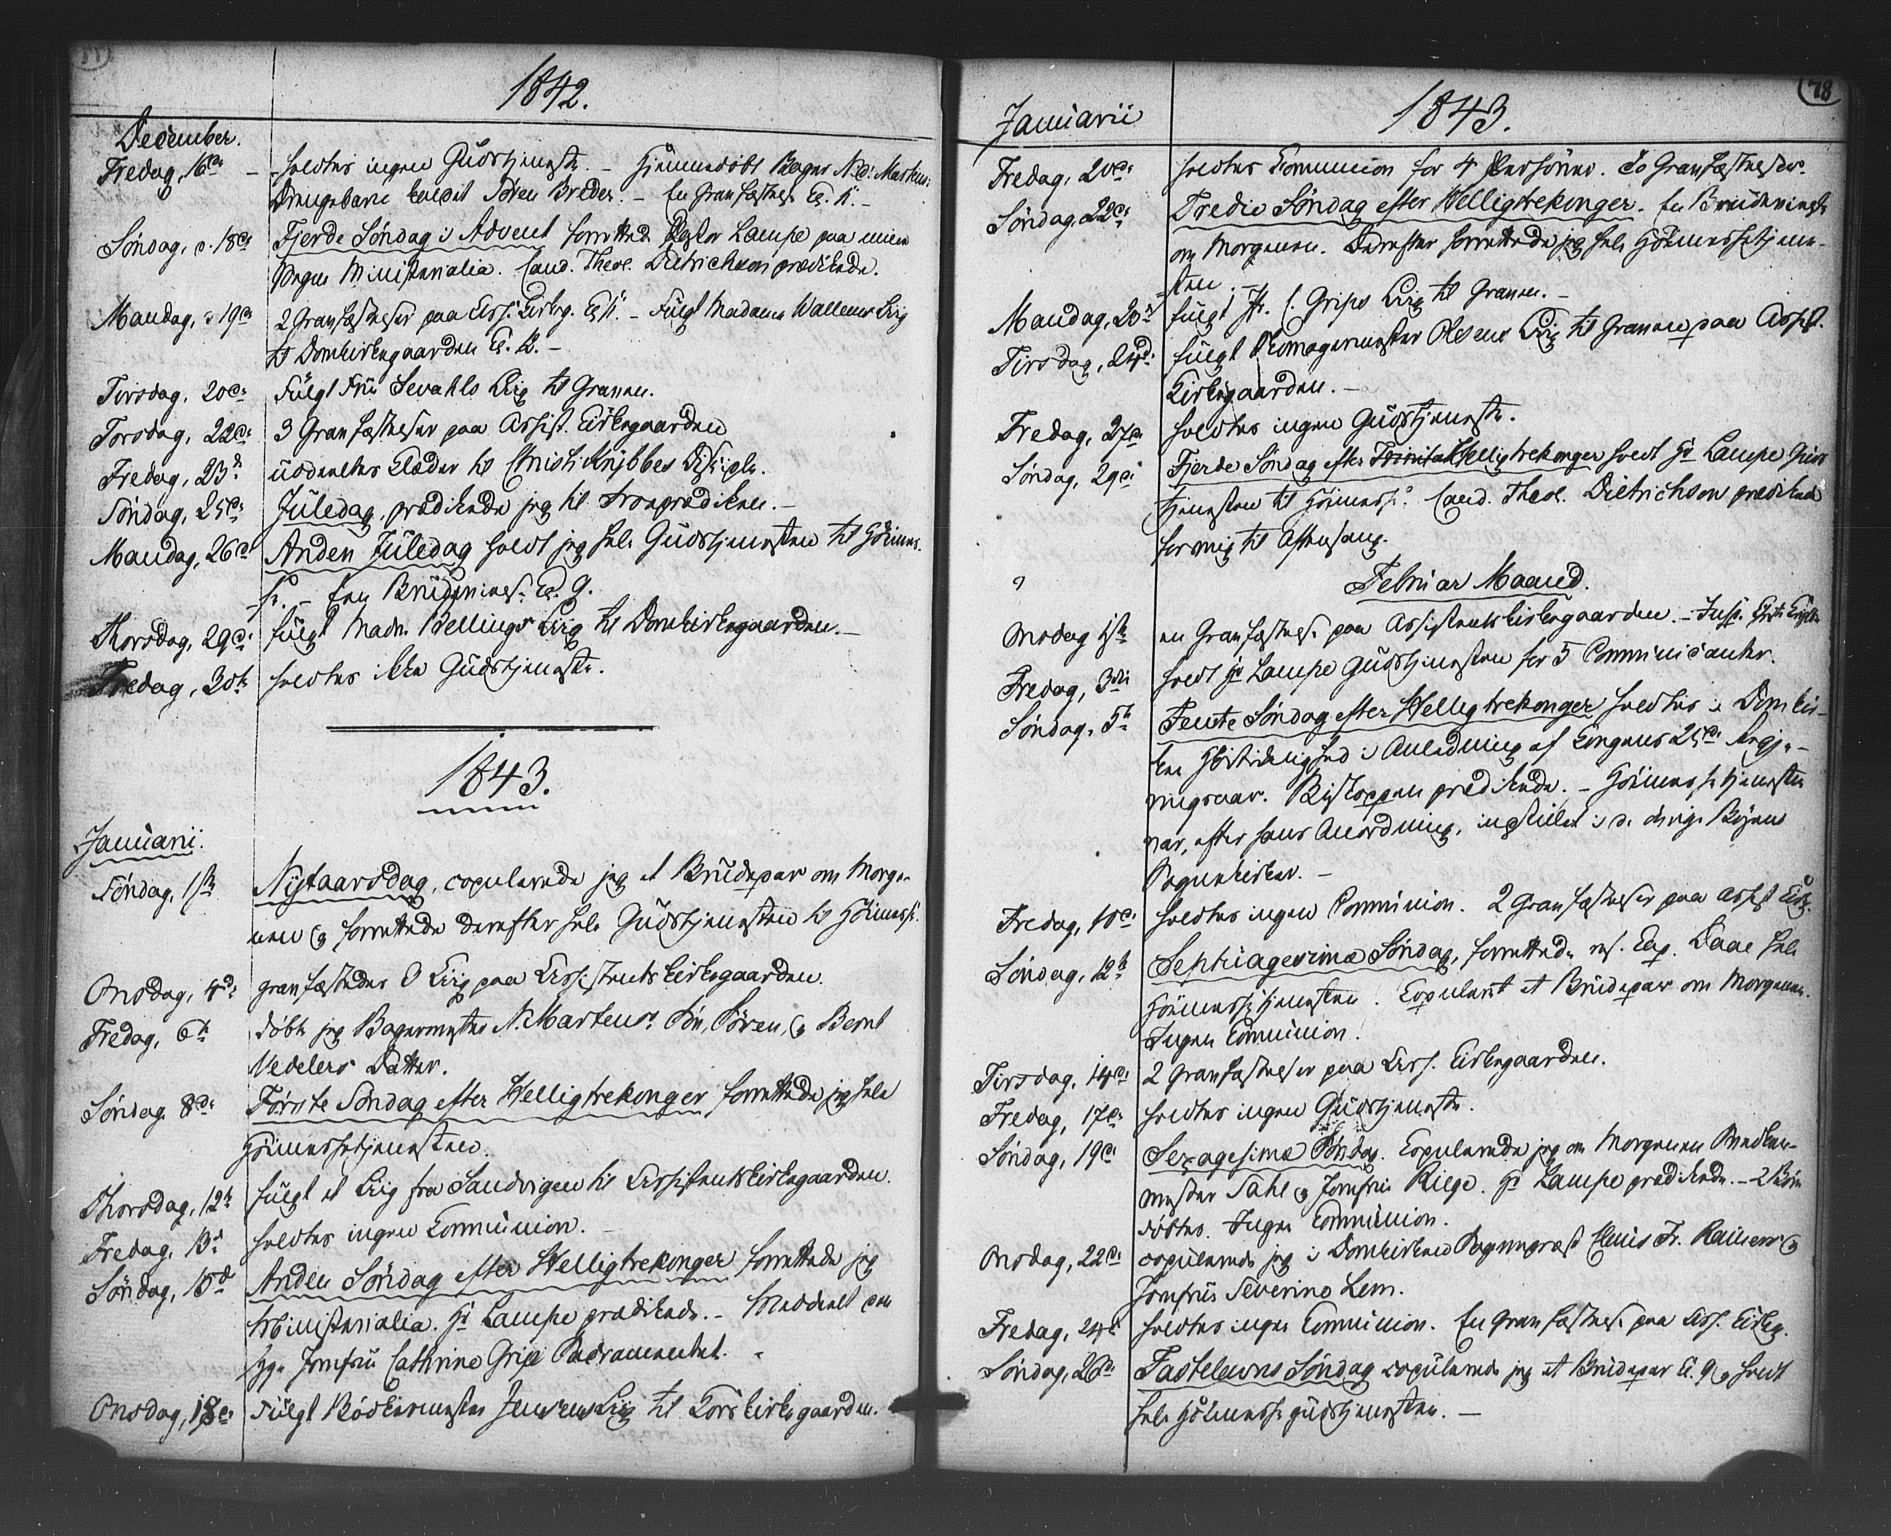 1842.
December.
Fredag, 16de holdtes ingen Gudstjeneste. – Hjemmedøbt Bager N. Martens
Drengebarn kaldet Søren Breder. – En Gravfæstelse
Søndag, d. 18de Fjerde Søndag i Advent forrettede Pastor Lampe paa mine
Vegne Ministerialia. Cand. Theol. Dietrichson prædikede.
Mandag, d 19de 2 Gravfæstelser paa Ass: Kirkeg. – Fulgt Madame Wallems Liig
til Domkirkegaarden
Tirsdag, 20de Fulgt Fru Sevahls Liig til Graven.
Torsdag, 22de 3 Gravfæstelser paa Assist. Kirkegaarden
Fredag, 23d uddeeltes Klæder til Christi Krybbes Disciple.
Søndag, 25de Juledag, prædikede jeg til Froprædiken. –
Mandag, 26de Anden Juledag holdt jeg hele Gudstjenesten til Høimes-
se. – En Brudevielse
Thorsdag, 29de fulgt Madm. Bellings Liig til Domkirkegaarden. –
Fredag, 30te holdtes ikke Gudstjeneste.
1843.
Januarii.
Søndag, 1ste Nytaarsdag, copulerede jeg et Brudepar om Morge-
nen og forrettede derefter hele Gudstjenesten til Høimesse.
Onsdag, 4de gravfæstedes Liig paa Assistentskirkegaarden.
Fredag, 6te døbte jeg Bagermester N. Martens Søn, Søren, og Bernt
Vedelers Datter.
Søndag 8de Første Søndag efter Helligtrekonger forrettede jeg hele
Høimessetjenesten.
Thorsdag, 12te fulgt et Liig fra Sandvigen til Assistentskirkegaarden.
Fredag, 13de holdtes ingen Communion. –
Søndag, 15de Anden Søndag efter Helligtrekonger forrettede jeg
Ministerialia. Hr Lampe prædikede. – Meddeelt den
syge Jomfru Cathrine Grip Sacramentet. –
Onsdag, 18de Fulgt Bødkermester Jensens Liig til Korskirkegaarden.
78
Januarii 1843.
Fredag, 20de holdtes Communion for 4 Personer. To Gravfæstelser.
Søndag, 22de Tredie Søndag efter Helligtrekonger. En Brudevielse
om Morgenen. Derefter forrettede jeg hele Høimessetjene-
sten. –
Mandag, 23de fulgt Jfr. C. Grips Liig til Graven. –
Tirsdag, 24de fulgt Skomagermester Olsens Liig til Graven paa Assist.
Kirkegaarden. –
Fredag, 27de holdtes ingen Gudstjeneste.
Søndag, 29de Fjerde Søndag efter Helligtrekonger holdt Hr Lampe Guds
tjenesten til Høimesse. Cand. Theol. Dietrichson prædikede
for mig til Aftensang.
Februar Maaned.
Onsdag 1ste en Gravfæstelse paa Assistentskirkegaarden. –
Fredag, 3die holdt Hr Lampe Gudstjenesten for 5 Communicanter.
Søndag, 5te Femte Søndag efter Helligtrekonger holdtes i Domkir-
ken Høitidelighed i Anledning af Kongens 25de Regje-
ringsaar. Biskoppen prædikede. – Høimessetjenesten
var, efter hans Anordning, indstillet i de øvrige Byens
Sognekirker. –
Fredag, 10de holdtes ingen Communion. 2 Gravfæstelser paa Assist Kirkg.
Søndag, 12te Septuagesimæ Søndag, forrettede res. Cap. Daae hele
Høimessetjenesten. Copuleret et Brudepar om Morgenen.
Ingen Communion.
Tirsdag, 14de 2 Gravfæstelser paa Ass. Kirkegaarden.
Fredag, 17de holdtes ingen Gudstjeneste.
Søndag, 19de Sexagesimæ Søndag. Copulerede jeg om Morgenen Snedker-
mester Dahl og Jomfru Riege. Hr Lampe prædikede. – 2 Børn
døbtes. Ingen Communion.
Onsdag, 22de copulerede jeg i Domkirken Sognepræst Claus Fr. Reimers og
Jomfru Severine Lem.
Fredag, 24de holdtes ingen Communion. En Gravfæstelse paa Ass. Kirkeg.
Søndag, 26de Fastelavns Søndag copulerede jeg et Brudepar og holdt
hele Høimesse gudstjenesten. –